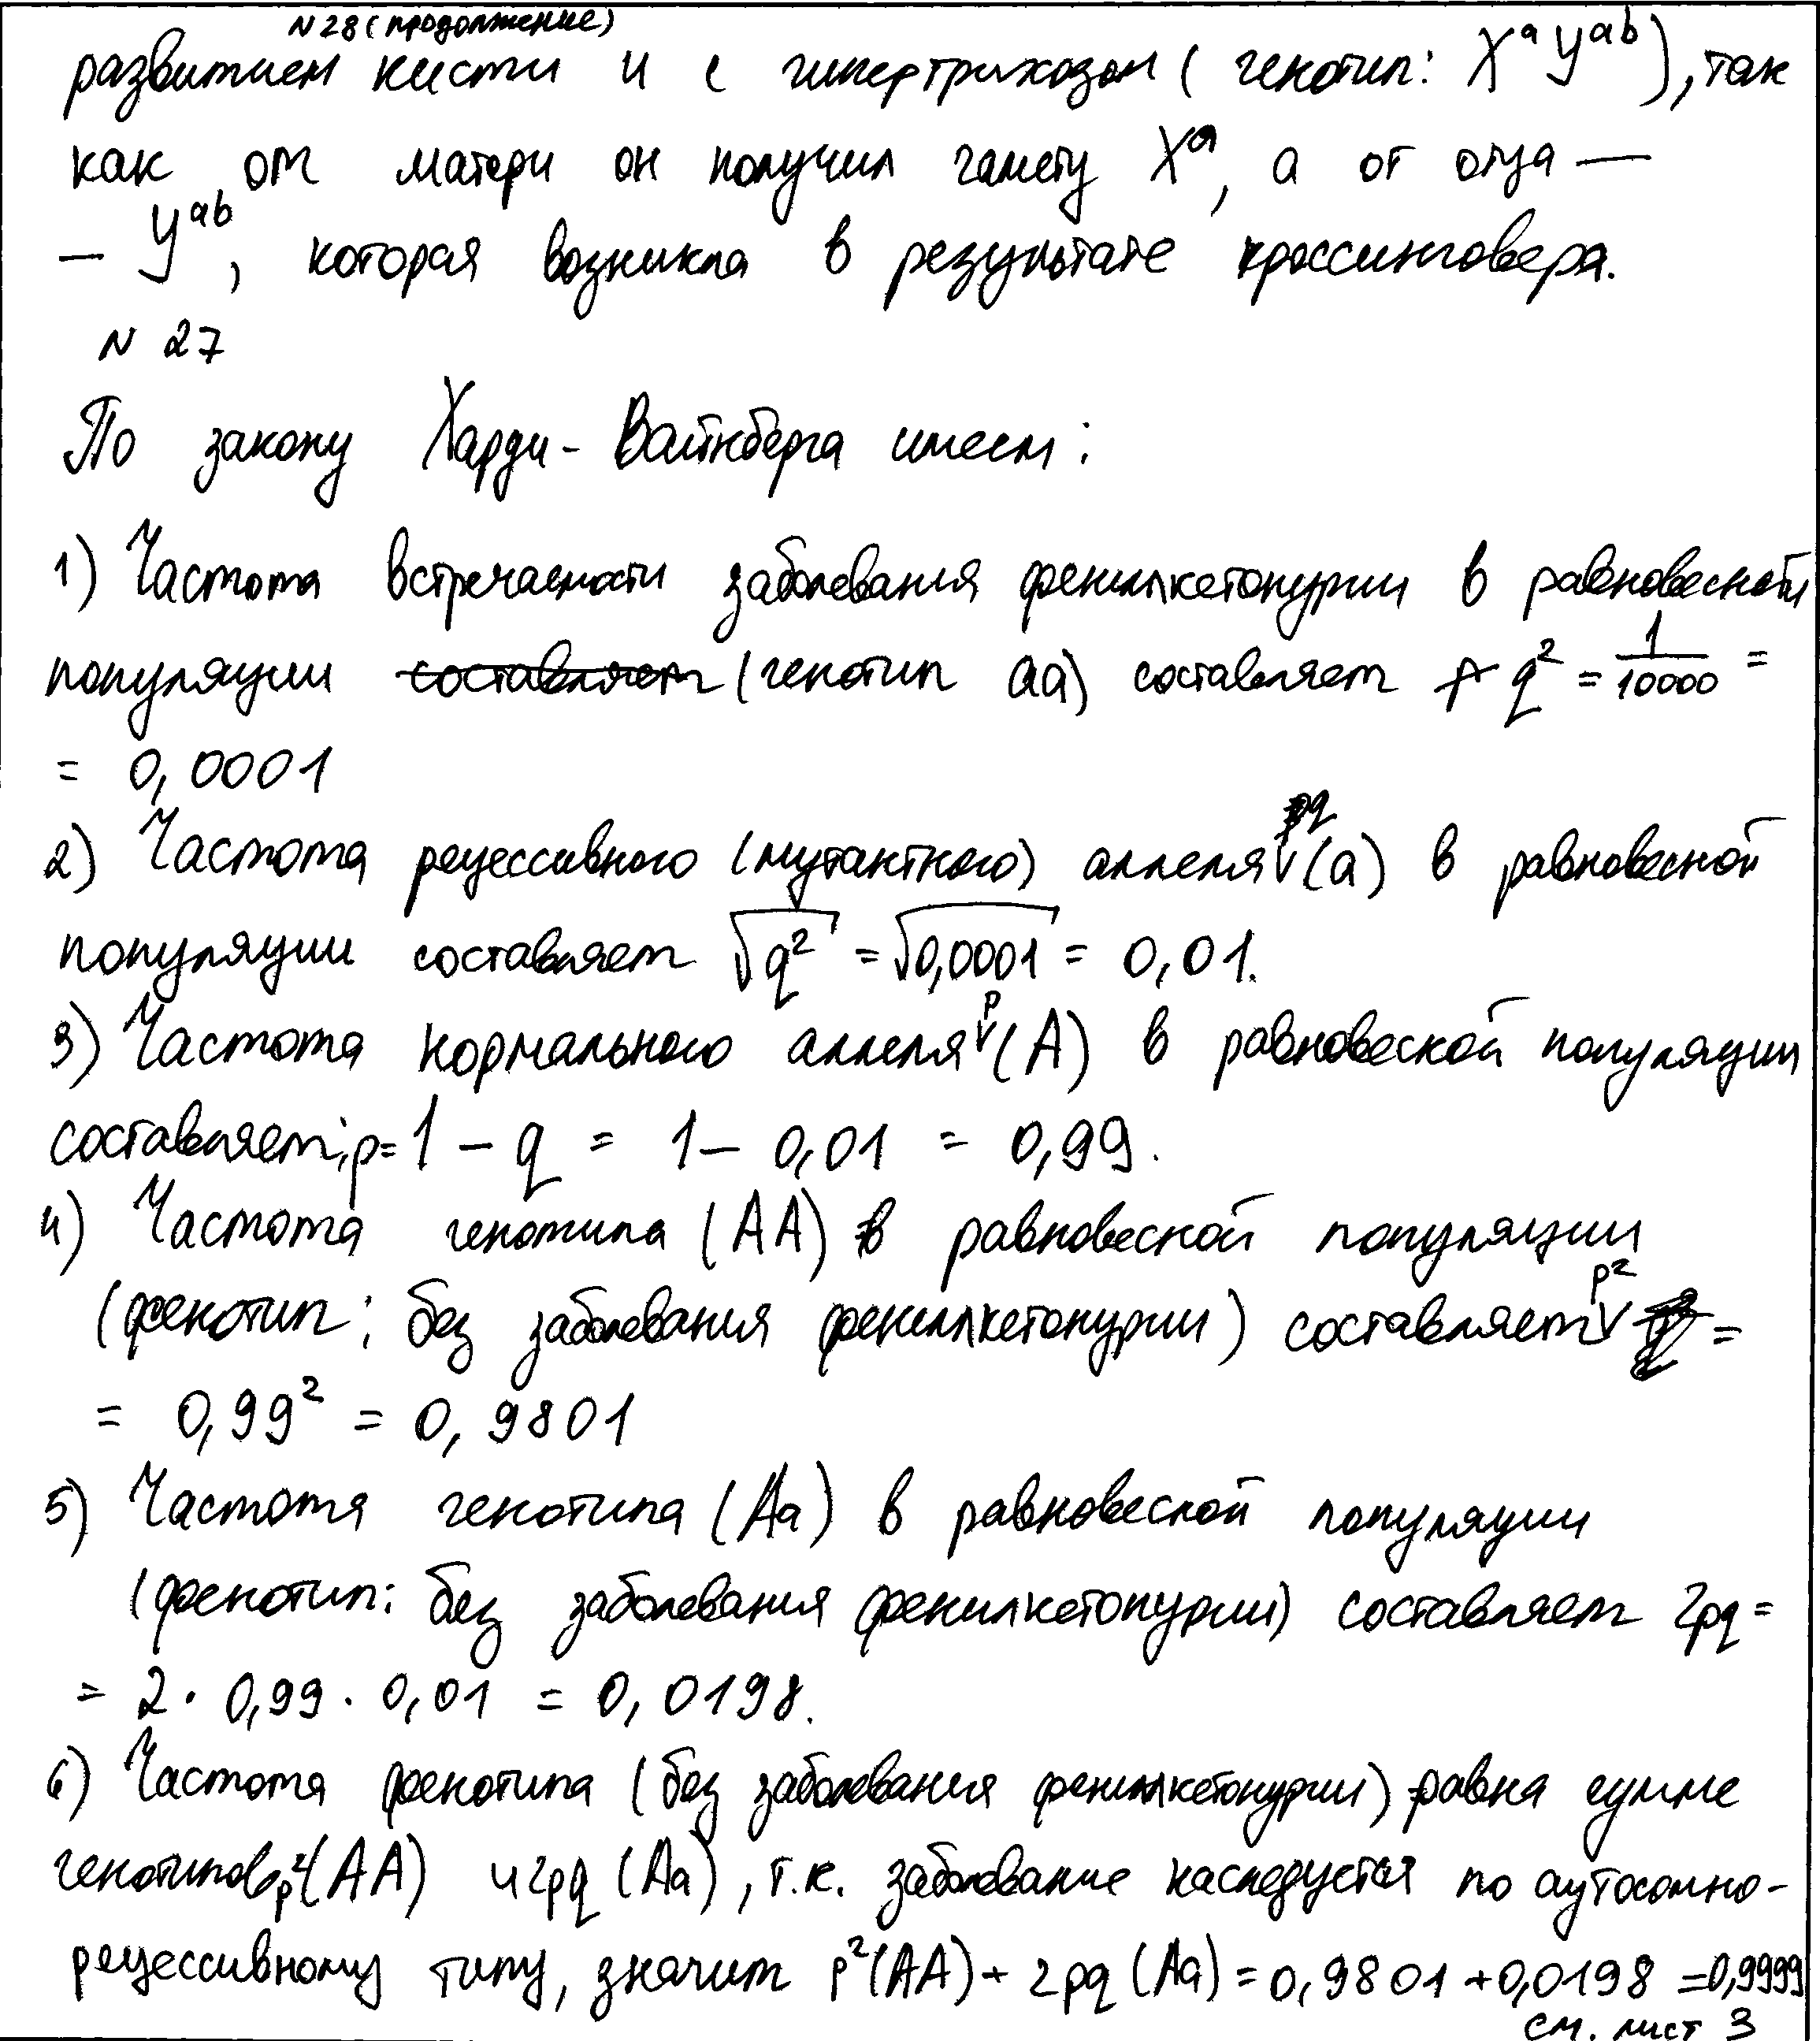 N 28 (продолжение)
развитием кисти и с гипертрихозом (генотип: Xᵃ Yᵃᵇ), так
как от матери он получил гамету Xᵃ, а от отца —
— Yᵃᵇ, которая возникла в результате кроссинговера.
N 27
По закону Харди - Вайнберга имеем:
1) Частота встречаемости заболевания фенилкетонурии в равновесной
популяции ~~составляет~~ (генотип aa) составляет q² = 1/10000 =
= 0,0001
2) Частота рецессивного (мутантного) аллеля q (a) в равновесной
популяции составляет √q² = √0,0001 = 0,01.
3) Частота нормального аллеля p (A) в равновеской популяции
составляет: p = 1 – q = 1 – 0,01 = 0,99.
4) Частота генотипа (AA) в равновесной популяции
(фенотип: без заболевания фенилкетонурии) составляет p² =
= 0,99² = 0,9801
5) Частота генотипа (Aa) в равновесной популяции
(фенотип: без заболевания фенилкетонурии) составляет 2pq =
= 2 · 0,99 · 0,01 = 0,0198.
6) Частота фенотипа (без заболевания фенилкетонурии) равна сумме
генотипов p² (AA) и 2pq (Aa), т.к. заболевание наследуется по аутосомно-
рецессивному типу, значит p² (AA) + 2pq (Aa) = 0,9801 + 0,0198 = 0,9999
см. лист 3